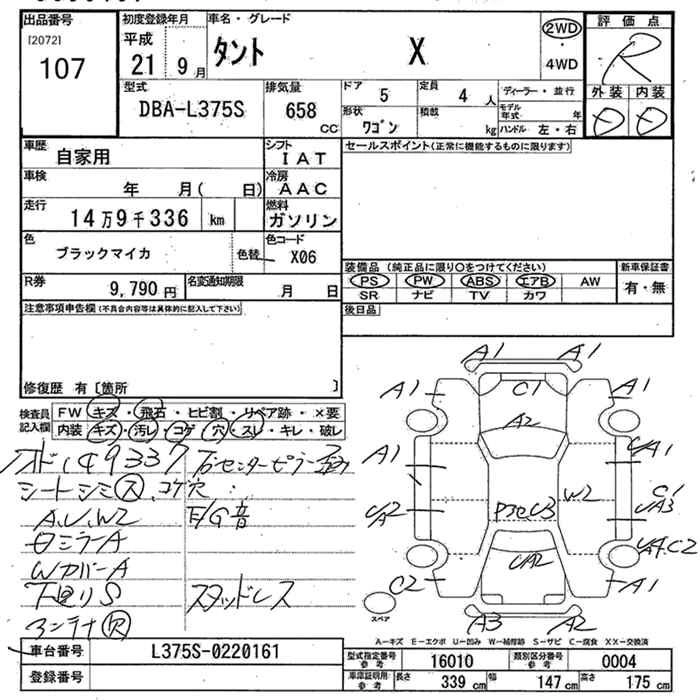 出品番号
[2072]
107
初度登録年月
平成
21 9月
車名・グレード
タント X
2WD
・
4WD
評価点
R
外装 内装
D D
型式
DBA-L375S
排気量
658 CC
ドア
5
定員
4 人
ディーラー・並行
形状
ワゴン
積載
kg
モデル年式 年
ハンドル 左・右
車歴
自家用
シフト
IAT
セールスポイント(正常に機能するものに限ります)
車検
年 月( 日)
冷房
AAC
走行
14万9千336 km
燃料
ガソリン
色
ブラックマイカ
色替
色コード
X06
装備品 (純正品に限り○をつけてください)
新車保証書
PS PW ABS エアB AW
SR ナビ TV カワ
有・無
R券
9,790円
名変通知期限
月 日
後日品
注意事項申告欄(不具合内容等は具体的に記入して下さい)
修復歴 有〔箇所 〕
検査員記入欄
FW キズ・飛石・ヒビ割・リペア跡・×要
内装 キズ・汚レ・コゲ・穴・スレ・キレ・破レ
149337
シートシミ ス、コゲ穴
A.U.W2
E/G音
ミラーA
WカバーA
下廻りS
スタッドレス
アンテナ欠
A1 A1
A1 C1 A1
A2
A1
W2
C1
UA3
UA2
C2 UA2 A1
A3 A2
スペア
A―キズ E―エクボ U―凹み W―補修跡 S―サビ C―腐食 XX―交換済
車台番号
L375S-0220161
登録番号
型式指定番号
参考
16010
類別区分番号
参考
0004
車庫証明用
参考
長さ 339 cm
幅 147 cm
高さ 175 cm